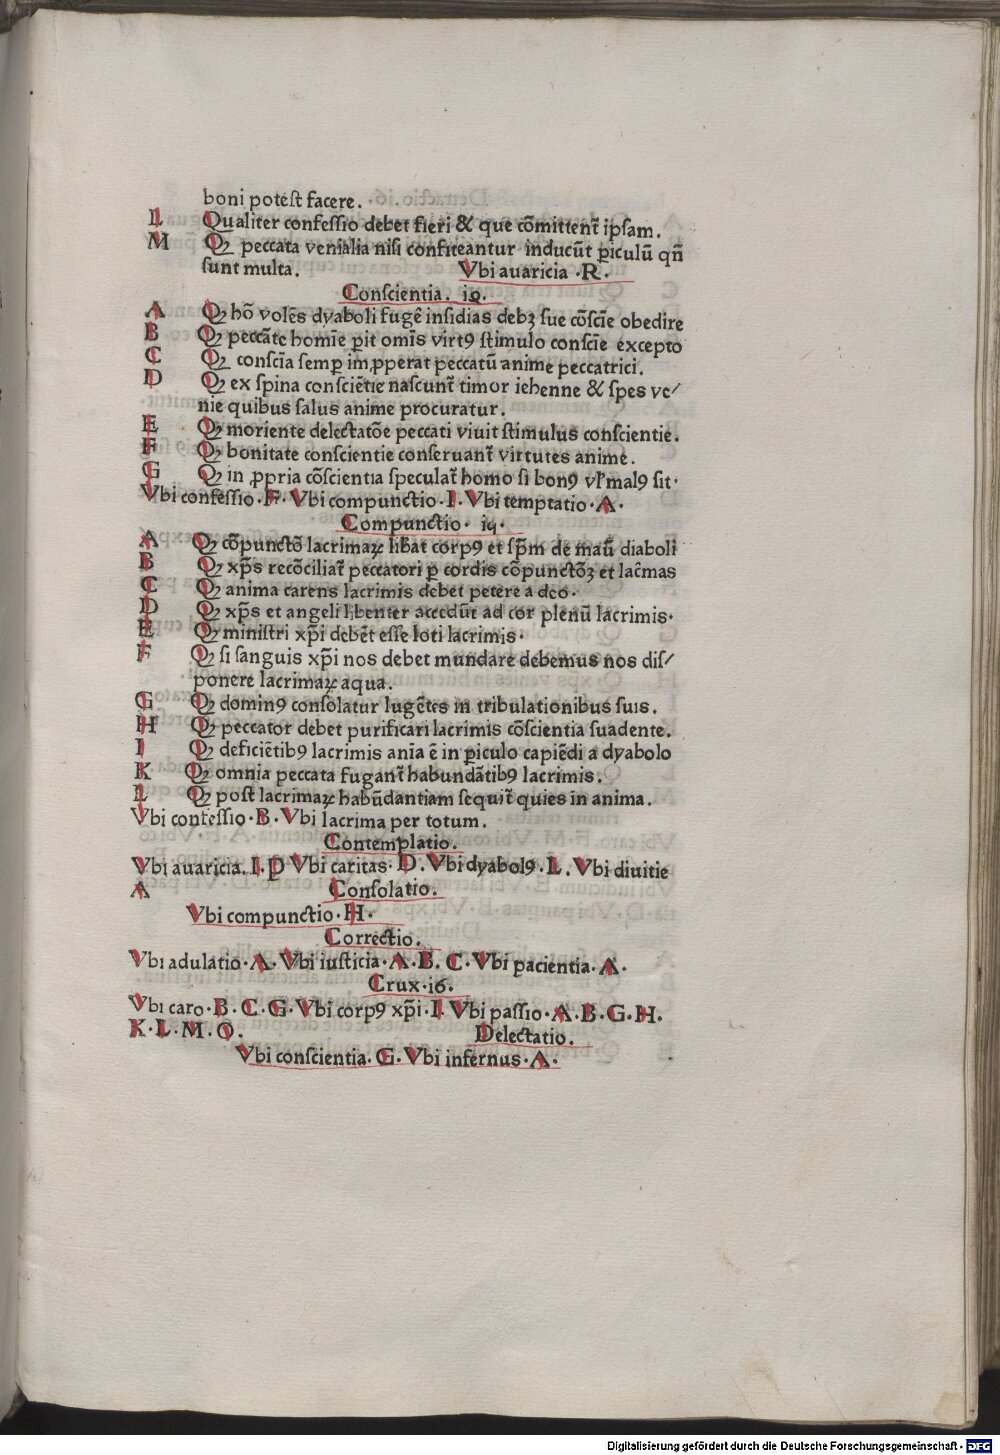 boni potest facere.
L Qualiter confessio debet fieri & que cōmittent̄ ipsam.
M Qꝫ peccata venialia nisi confiteantur inducūt piculū qn̄
sunt multa. Vbi avaricia .R.
Conscientia. iꝙ.
A Qꝫ hō volēs dyaboli fugē insidias debꝫ sue cōscīe obedire
B Qꝫ peccāte homīe ꝑit omīs virtꝰ stimulo conscīe excepto
C Qꝫ conscīa semꝑ imꝓperat peccatū anime peccatrici.
D Qꝫ ex spina consciētie nascunt̄ timor iehenne & spes ve/
nie quibus salus anime procuratur.
E Qꝫ moriente delectatōe peccati viuit stimulus conscientie.
F Qꝫ bonitate conscientie conseruant̄ virtutes anime.
G Qꝫ in ꝓpria cōscientia speculat̄ homo si bonꝰ vl̄ malꝰ sit.
Vbi confessio.F. Vbi compunctio.I. Vbi temptatio.A.
Compunctio. iꝙ.
A Qꝫ cōpunctō lacrimaꝝ libat corpꝰ et sp̄m de maū diaboli
B Qꝫ xp̄s recōciliat̄ peccatori ꝑ cordis cōpunctōꝫ et lac̄mas
C Qꝫ anima carens lacrimis debet petere a deo.
D Qꝫ xp̄s et angeli libenter accedūt ad cor plenū lacrimis.
E Qꝫ ministri xp̄i debēt esse loti lacrimis.
F Qꝫ si sanguis xp̄i nos debet mundare debemus nos dis/
ponere lacrimaꝝ aqua.
G Qꝫ dominꝰ consolatur lugētes in tribulationibus suis.
H Qꝫ peccator debet purificari lacrimis cōscientia suadente.
I Qꝫ deficiētibꝰ lacrimis anīa ē in ꝑiculo capiēdi a dyabolo
K Qꝫ omnia peccata fugant̄ habundātibꝰ lacrimis.
L Qꝫ post lacrimaꝝ habūdantiam sequit̄ quies in anima.
Vbi confessio.B. Vbi lacrima per totum.
Contemplatio.
Vbi avaricia.I.P Vbi caritas.D. Vbi dyabolꝰ.L. Vbi diuitie
A Consolatio.
Vbi compunctio.H.
Correctio.
Vbi adulatio.A. Vbi iusticia.A.B.C. Vbi pacientia.A.
Crux.i6.
Vbi caro.B.C.G. Vbi corpꝰ xp̄i.I Vbi passio.A.B.G.H.
K.L.M.O. Delectatio.
Vbi conscientia.G. Vbi infernus.A.
Digitalisierung gefördert durch die Deutsche Forschungsgemeinschaft - DFG